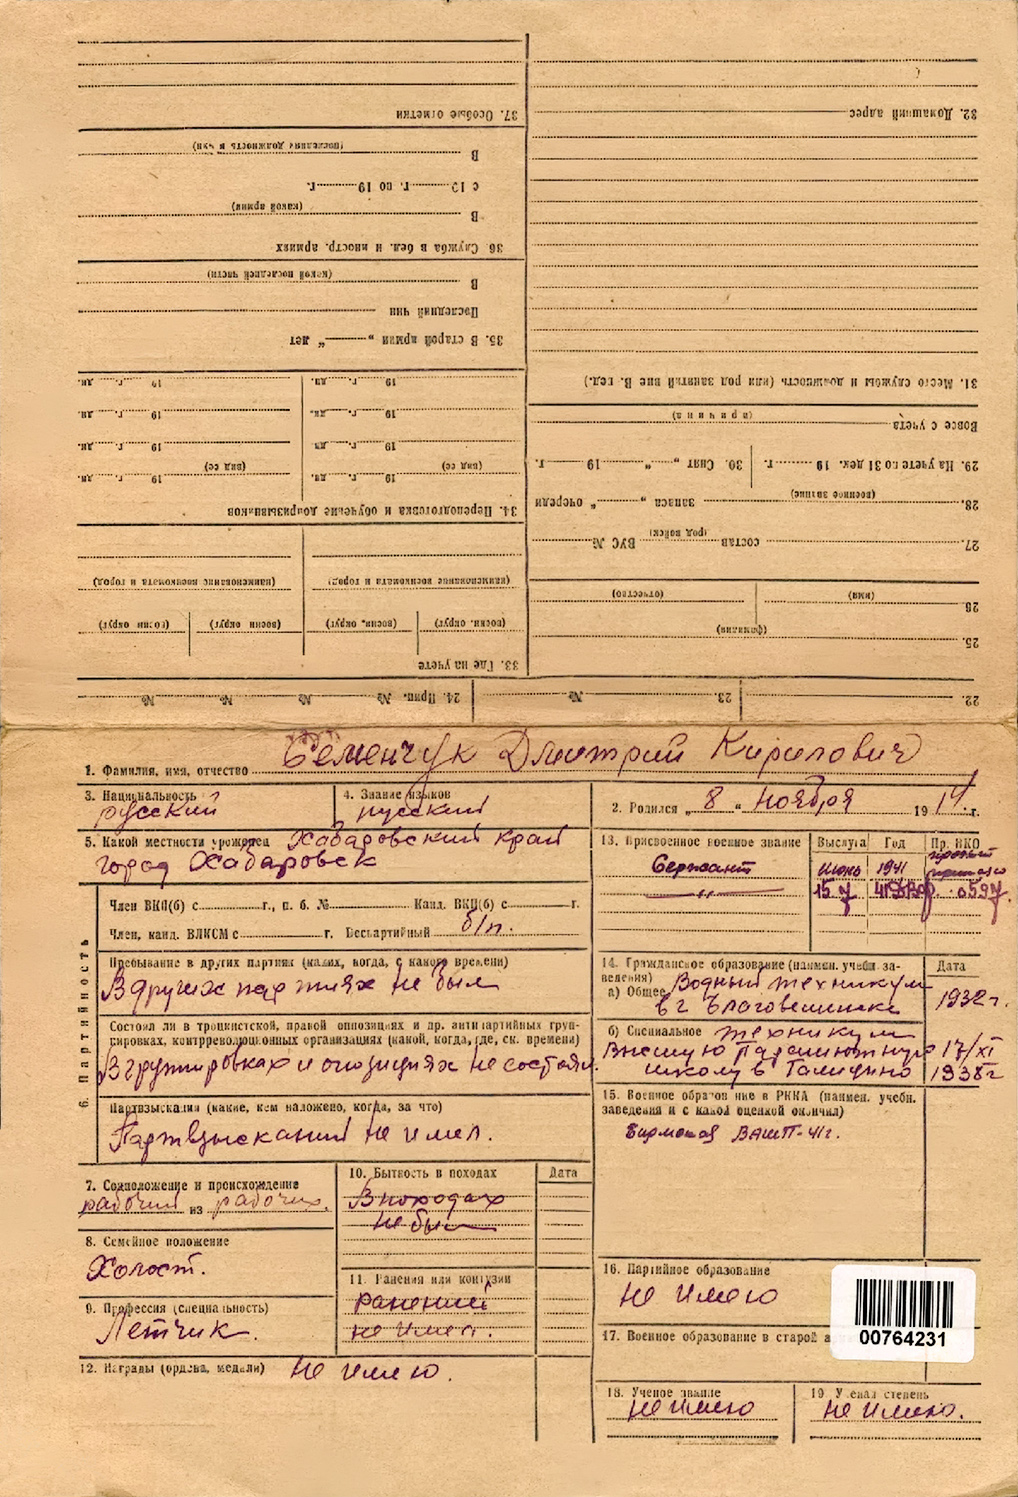 37. Особые отметки
(последняя должность и чин)
В
с 19 г. по 19 г.
(какой армии)
В
36. Служба в бел. и иностр. армиях
(какой последней части)
В
Последний чин
35. В старой армии „ “ лет
19 г. дн. 19 г. дн.
19 г. дн. 19 г. дн.
19 г. дн. 19 г. дн.
(вид сс) 19 г. дн. (вид сс) 19 г. дн.
34. Переподготовка и обучение допризывников
(наименование военкомата и город) (наименование военкомата и город)
(воен. округ) (воен. округ) (воен округ) (воен округ)
33. Где на учете
32. Домашний адрес
31. Место службы и должность (или род занятий вне В. вед.)
(причина)
Вовсе с учета
29. На учете по 31 дек. 19 г. 30. Снят „ “ 19 г.
28. (военное звание) запаса „ “ очереди
27. состав (род войск) ВУС №
26 (имя) (отчество)
25. (фамилия)
22. 23. № 24. Прип. № № № №
1. Фамилия, имя, отчество Семенчук Дмитрий Кирилович
3. Национальность русский
4. Знание языков русский
2. Родился „ 8 “ ноября 19 14 г.
5. Какой местности уроженец Хабаровский край
город Хабаровск
6. Партийность
Член ВКП(б) с г., п. б. № Канд. ВКП(б) с г.
Член, канд. ВЛКСМ с г. Беспартийный б/п.
Пребывание в других партиях (каких, когда, с какого времени)
В других партиях не был
Состоял ли в троцкистской, правой оппозициях и др. антипартийных груп-
пировках, контрреволюционных организациях (какой, когда, где, ск. времени)
В группировках и опозициях не состоял.
Партвзыскания (какие, кем наложено, когда, за что)
Партвзысканий не имел.
7. Соцположение и происхождение
рабочий из рабочих.
8. Семейное положение
Холост.
9. Профессия (специальность)
Летчик.
10. Бытность в походах Дата
В походах
не был
11. Ранения или контузии
ранений
не имел.
12. Награды (ордена, медали) не имею.
13. Присвоенное военное звание Выслуга Год Пр. НКО
Сержант июнь 1941
" 15.7 0597
14. Гражданское образование (наимен. учебн. за- Дата
ведения)
а) Общее Водный техникум
в г Благовещенске 1932 г.
б) Специальное техникум
Высшую Парашютную 17/XI
школу в Голицино 1938 г
15. Военное образование в РККА (наимен. учебн.
заведения и с какой оценкой окончил)
Бирмская ВАШП-41г.
16. Партийное образование
не имею
17. Военное образование в старой а
00764231
18. Ученое звание
не имею
19. Ученая степень
не имею.